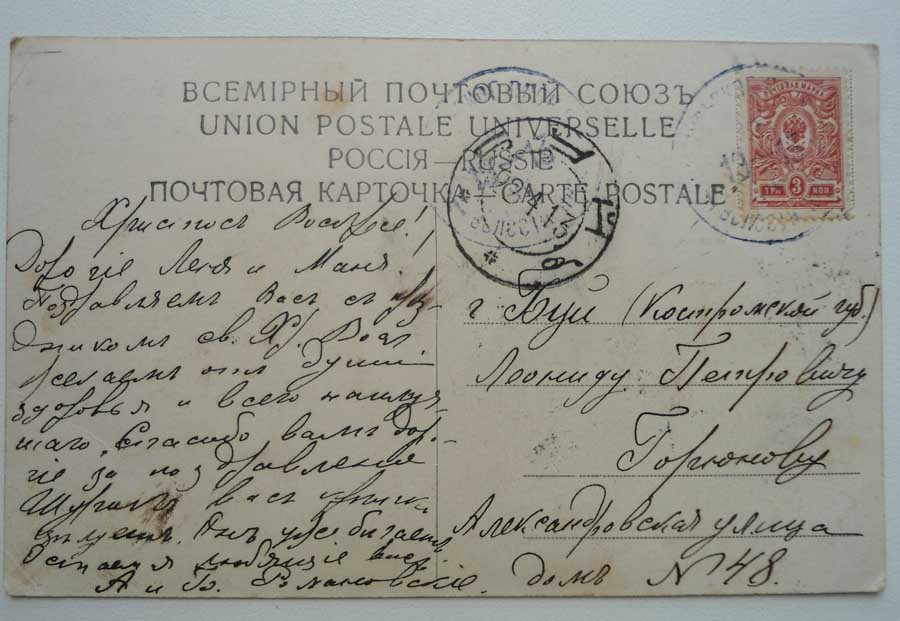 ВСЕМІРНЫЙ ПОЧТОВЫЙ СОЮЗЪ
UNION POSTALE UNIVERSELLE
РОССІЯ — RUSSIE
ПОЧТОВАЯ КАРТОЧКА — CARTE POSTALE
ПОЧТОВАЯ МАРКА
ТРИ 3 КОП
Христосъ Воскресе!
Дорогіе Леня и Маня!
Поздравляемъ Васъ съ праз
дникомъ св. Хр. Воск.
Желаемъ отъ души
здоровья и всего наилуч
шаго. Спасибо вамъ доро-
гіе за поздравленія
Шурикъ васъ
Онъ уже бѣгаетъ
Остаемся любящіе васъ
А и В. Романовскіе.
г Буй (Костромской губ.)
Леониду Петровичу
Горюнову
Александровская улица
домъ № 48.